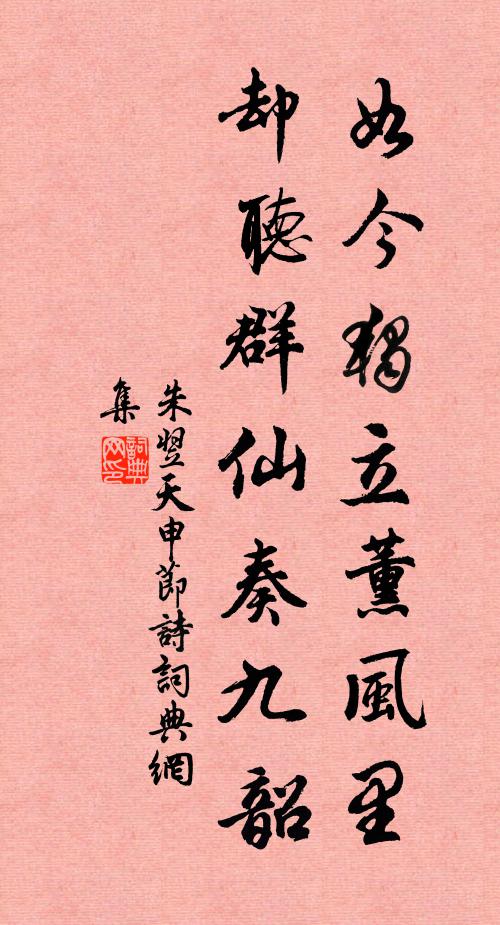 如今獨立薰風里
却聽群仙奏九韶
朱翌天申節詩詞典網
集
詞典网印